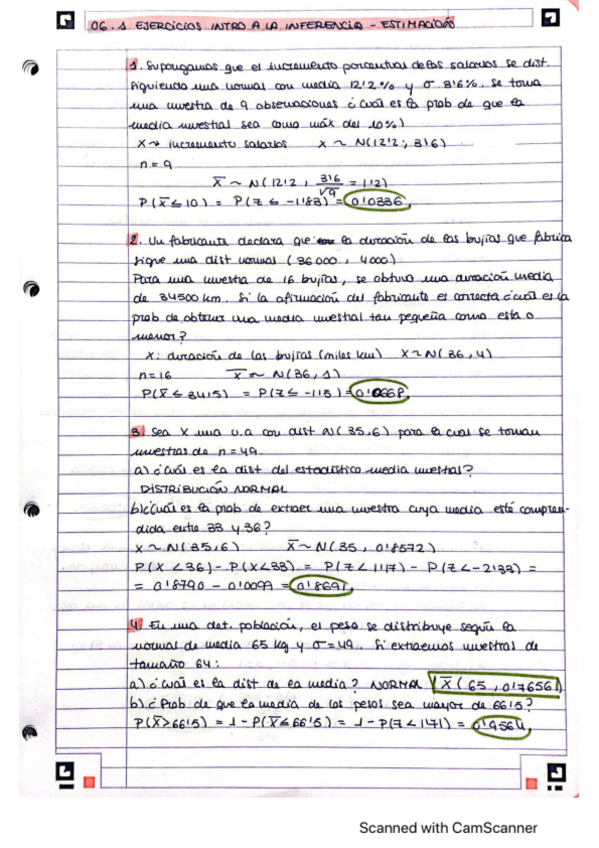 06.1 EJERCICIOS INTRO A LA INFERENCIA - ESTIMACIÓN
1. Supongamos que el incremento porcentual de los salarios se dist.
siguiendo una normal con media 12'2% y σ 3'6%. Se toma
una muestra de 9 observaciones ¿Cuál es la prob de que la
media muestral sea como máx del 10%)
X → incremento salarios X ~ N(12'2, 3'6)
n = 9
X̄ ~ N(12'2, 3'6/√9 = 1'2)
P(X̄ ≤ 10) = P(Z ≤ -1'83) = 0'0336
2. Un fabricante declara que la duración de las bujías que fabrica
sigue una dist normal (36000, 4000)
Para una muestra de 16 bujías, se obtuvo una duración media
de 34500 km. Si la afirmación del fabricante es correcta ¿cuál es la
prob de obtener una media muestral tan pequeña como esta o
menor?
X: duración de las bujías (miles km) X ~ N(36, 4)
n = 16 X̄ ~ N(36, 1)
P(X̄ ≤ 34'5) = P(Z ≤ -1'5) = 0'0668
3. Sea X una v.a con dist N(35,6) para la cual se toman
muestras de n = 49.
a) ¿Cuál es la dist del estadístico media muestral?
DISTRIBUCIÓN NORMAL
b) ¿Cuál es la prob de extraer una muestra cuya media esté compren-
dida entre 33 y 36?
X ~ N(35,6) X̄ ~ N(35, 0'8572)
P(X < 36) - P(X < 33) = P(Z < 1'17) - P(Z < -2'33) =
= 0'8790 - 0'0099 = 0'8691
4. En una det. población, el peso se distribuye según la
normal de media 65 kg y σ = 49. Si extraemos muestras de
tamaño 64:
a) ¿Cuál es la dist de la media? NORMAL X̄ (65, 0'7656)
b) ¿Prob de que la media de los pesos sea mayor de 66'5?
P(X̄ > 66'5) = 1 - P(X̄ ≤ 66'5) = 1 - P(Z < 1'71) = 0'9564
Scanned with CamScanner